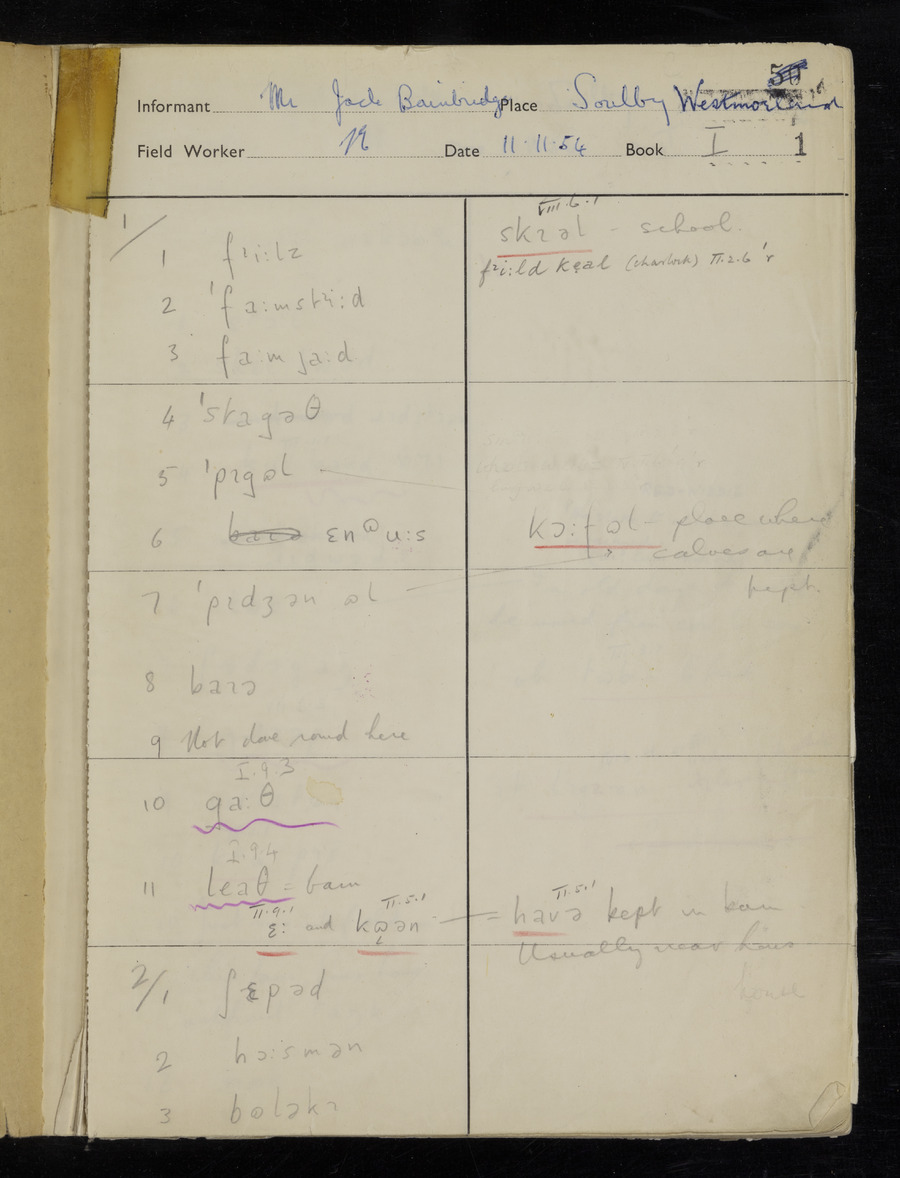 50
Informant Mr Jack Bainbridge Place Soulby Westmorland
Field Worker Date 11.11.54 Book I 1
1/
1 fɪi:lz
2 'fa:mstɪ:d
3 fa:m ja:d
4 'stagəθ
5 'pɪgəl
6 ɛn u:s
7 'pɪdʒən əl
8 baɪə
9 Not done round here
I.9.3
10 ga:θ
I.9.4
11 leaθ = barn
II.9.1 II.5.1
ɛ: and kən
2/1 ʃɛpəd
2 hɔ:smən
3
VIII.6.1
skɪəl - school.
fɪi:ld keal (charlock) II.2.6 'r
kɔ:fəl - place where
calves are
kept.
II.5.1
= havə kept in barn
Usually near
house